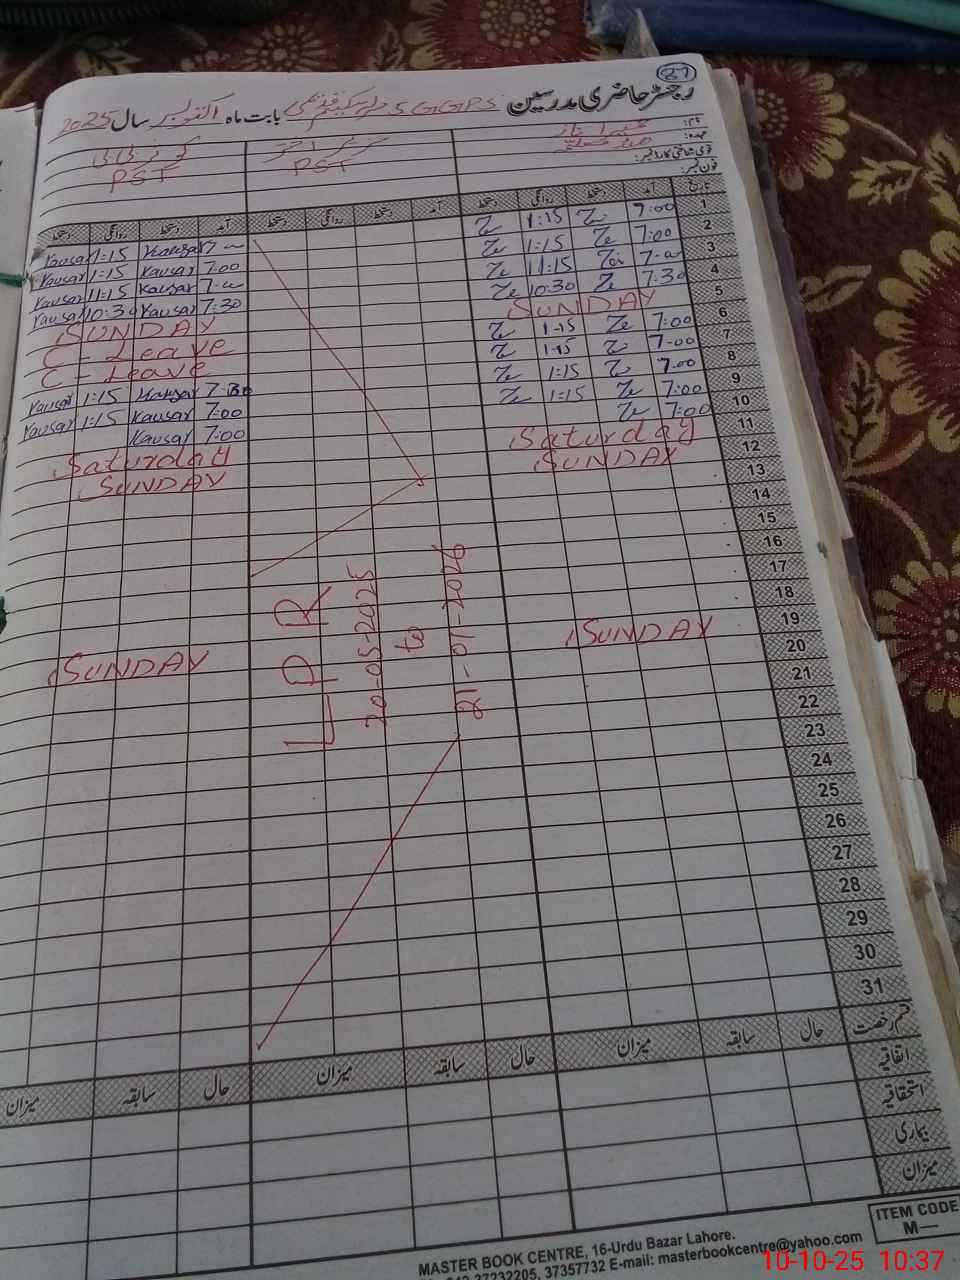 87
رجسٹر حاضری مدرسین GGPS بابت ماہ اکتوبر سال 2025
نام:
عہدہ:
قومی شناختی کارڈ نمبر:
فون نمبر:
PST PST
تاریخ آمد دستخط روانگی دستخط آمد دستخط روانگی دستخط آمد دستخط روانگی دستخط
1 7:00 Ze 1:15 Ze 7-00 Kausar 1:15 Kausar
2 7:00 Ze 1:15 Ze 7:00 Kausar 1:15 Kausar
3 7-00 Ze 11:15 Ze 7-00 Kausar 11:15 Kausar
4 7:30 Ze 10:30 Ze 7:30 Kausar 10:30 Kausar
5 SUNDAY SUNDAY
6 7:00 Ze 1-15 Ze C - Leave
7 7-00 Ze 1:15 Ze C - Leave
8 7:00 Ze 1:15 Ze 7:30 Kausar 1:15 Kausar
9 7:00 Ze 1:15 Ze 7:00 Kausar 1:15 Kausar
10 7:00 Ze 7:00 Kausar
11 Saturday Saturday
12 SUNDAY SUNDAY
13
14
15
16
17
18
19 SUNDAY SUNDAY
20
21
22
23
24
25
26
27
28
29
30
31
LPR
20-05-2025
to
21-01-2026
قسم رخصت حال سابقہ میزان حال سابقہ میزان حال سابقہ میزان
اتفاقیہ
استحقاقیہ
بیماری
میزان
ITEM CODE
M—
MASTER BOOK CENTRE, 16-Urdu Bazar Lahore.
37232205, 37357732 E-mail: masterbookcentre@yahoo.com
10-10-25 10:37